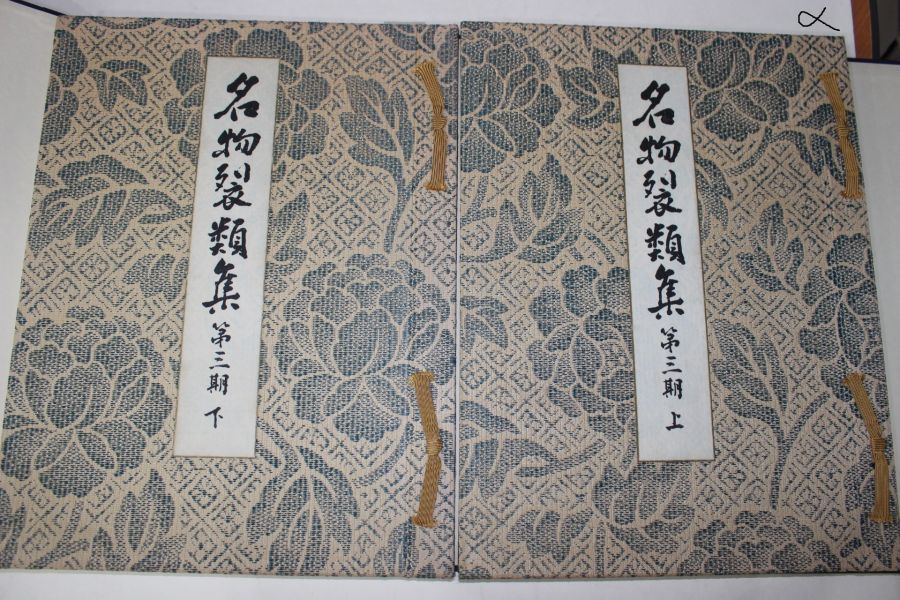 名物裂類集 第三期 上
名物裂類集 第三期 下